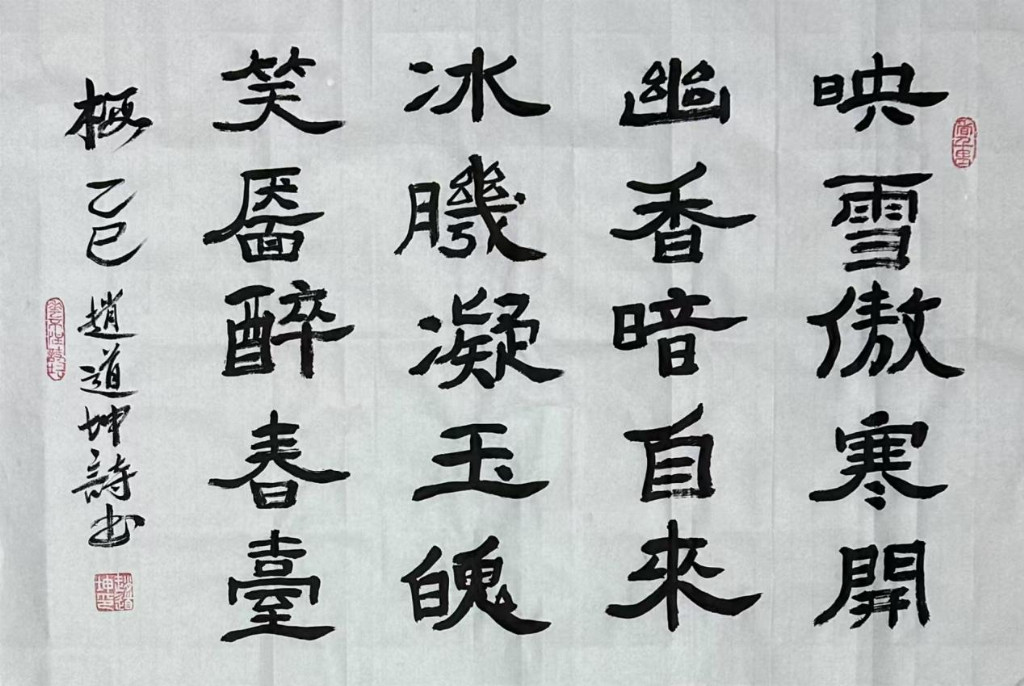 映雪傲寒開
幽香暗自來
冰𦠄凝玉魄
笑靨醉春臺
梅 乙巳 趙道坤詩书
趙道坤印